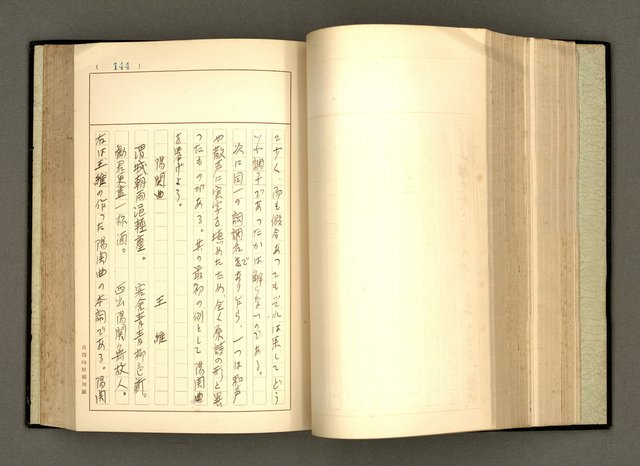 ( 144 )
こゆく、而も假令あつてもそれは果してどう
いふ調子であつたかは解らないのである。
次に同一の詞調名でありながら、一つは和声
や散声に実字を塡めたため全く原詩の形と異
つたものがある。其の最初の例として陽関曲
を挙げよう。
陽関曲　　王維
渭城朝雨浥軽塵。　客舎青青柳色新。
勧君更盡一杯酒。　西出陽関無故人。
右は王維の作つた陽関曲の本詞である。陽関